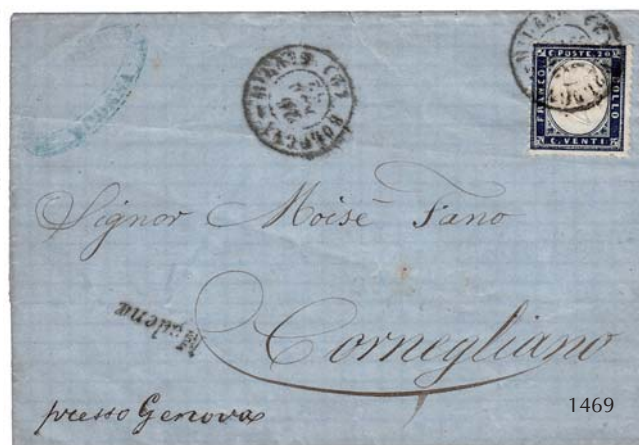 MODENA
MILANO
26
C. POSTE. 20
FRANCO
BOLLO
C. VENTI
Signor Moisè Fano
Modena
Cornegliano
presso Genova
1469